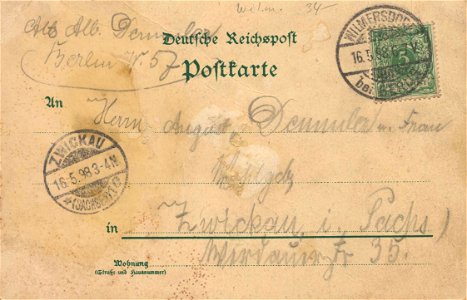 Wilm. 34
Abs. Alb. Demmler
Berlin W. 57
Deutsche Reichspost
Postkarte
WILMERSDORF
16.5.98
bei BERLIN
5
An
Herrn August Demmler u. Frau
ZWICKAU
16.5.98 3-4N
*(SACHSEN)*
in
Zwickau i. Sachs)
Werdauerstr 35.
Wohnung
(Straße und Hausnummer)